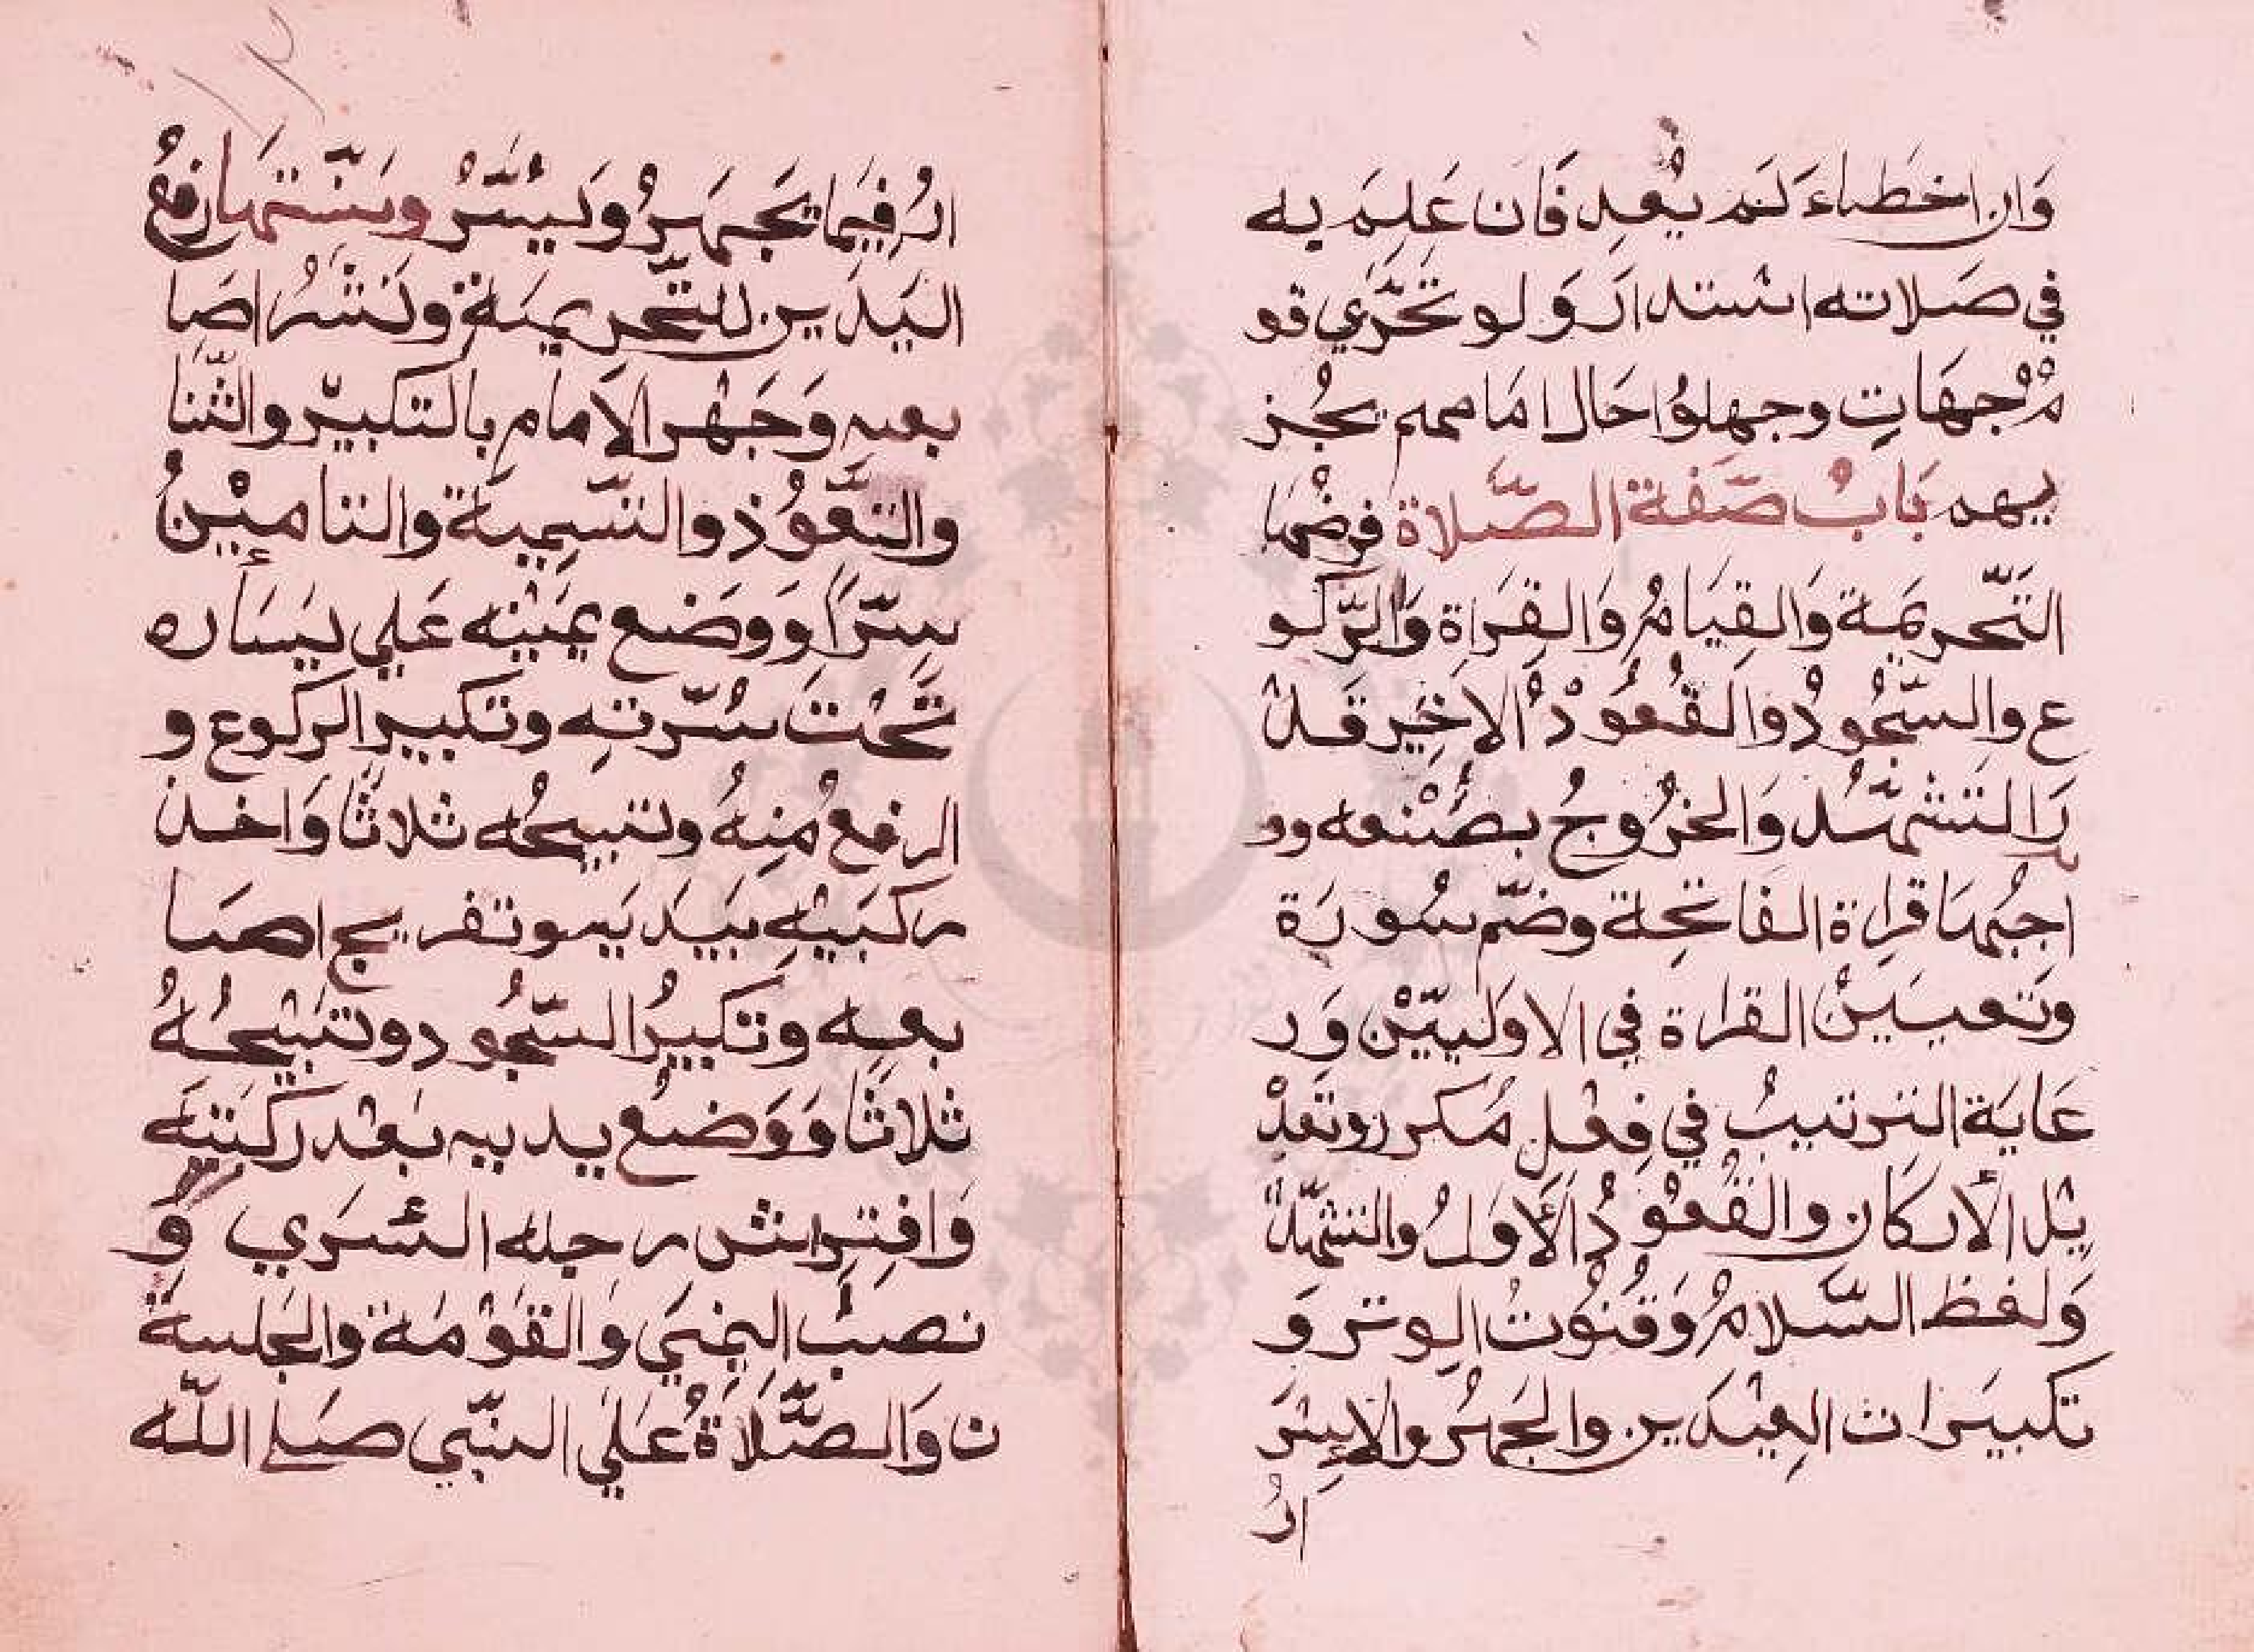 وَان اخطاءَ لَمَ يُعِدِ فَان عَلِمَ به
في صَلاته استدارَ وَلو تحَّرَي قو
مُ جهَاتِ وجهلوُا حَال امَامهم يجُز
يهم بَابُ صّفَة الصّلاة فرضُها
التَّحريمَة وَالقِيَامُ وَالقَراة وَالرَّكو
ع والسّجُودُ والقُعُودُ الاخِير قَد
رَ التَشهّد وَالخرُوجُ بصُنْعه وو
اجبُهَا قراة الفَاتحِة وضّم سُورَة
وتَعيَينْ القراة في الاوَليّيْن وَر
عَايَة الترتيبُ في فِعْلِ مُكرر وتَعدْ
يْل الأركَان والقُعُودُ الأَوَلُ والتشهّدْ
وَلفظ السّلامُ وَقنُوتُ الِوتر وَ
تكبيَرات العِيْدَين والجَهرُ والاِسْرَ
ارُ
ارُ فيَما يَجهَرُ وَيُسّرُ وسّنتَها رَفعُ
اليَدَين للتّحريمَة وَنشْرُ اصَا
بعه وَجَهْر الاَمام بالتكبيْر والثّنا
والتَّعوُذ والتّسِميَة والتامينُْ
سِرّاً وَوَضع يمَيْنِه عَلي يسَاره
تَحْتَ سُرّتهِ وتكبير الركوع و
الرفع مُنِهُ وتسبيحُه ثلاثًا وَاخذ
ركبَتيْهِ بيَدَيَه وتفريج اصَا
بعِه وتكبيرُ السّجُود وتَسْبيحُهُ
ثلاثًا وَوَضعُ يديه بَعْد ركبَتيْه
وَافتِراش رجله اليُسَري وَ
نصبُ اليمنَي وَالقَوْمَة والجَلسةَ
ن وَالصَّلَاةُ عَلَي النبّي صَلي اللّه